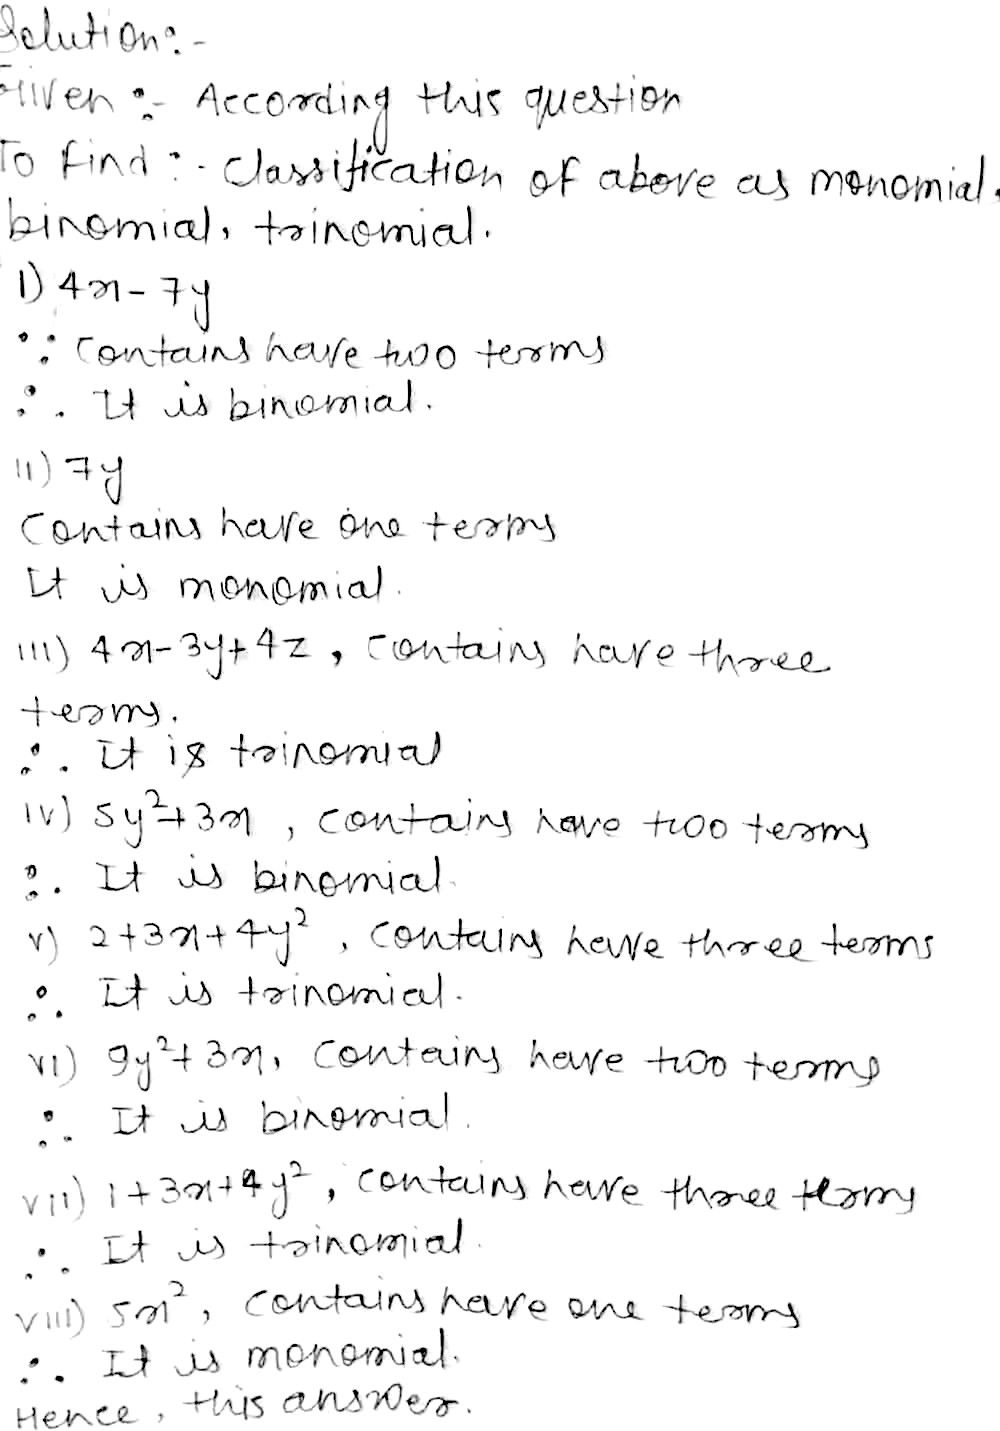 Solution:-
Given :- According this question
To find :- Classification of above as monomial,
binomial, trinomial.
i) 4x - 7y
∵ Contains have two terms
∴ It is binomial.
ii) 7y
Contains have one terms
It is monomial.
iii) 4x - 3y + 4z , Contains have three
terms.
∴ It is trinomial
iv) 5y²+3x , contains have two terms
∴ It is binomial.
v) 2+3x+4y² , Contains have three terms
∴ It is trinomial.
vi) 9y²+3x, Contains have two terms
∴ It is binomial.
vii) 1+3x+4y² , Contains have three terms
∴ It is trinomial.
viii) 5x² , Contains have one terms
∴ It is monomial.
Hence, this answer.